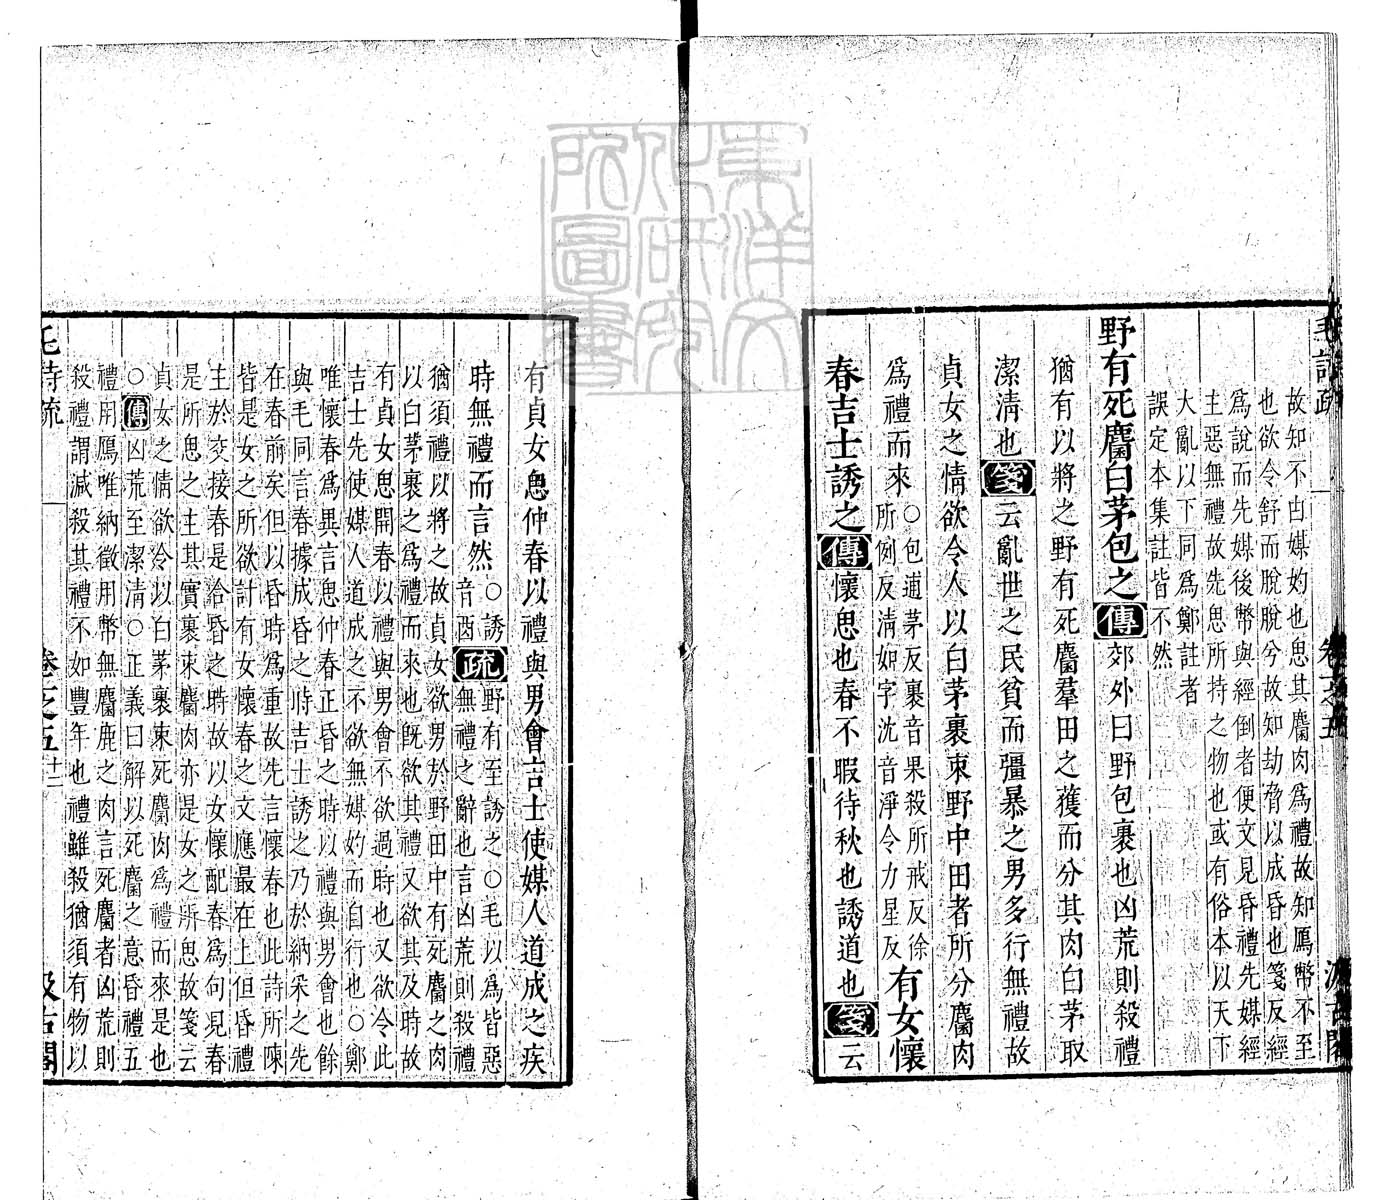 故知不由媒妁也思其麕肉爲禮故知鴈幣不至
也欲令舒而脫脫兮故知劫脅以成昏也箋反經
爲說而先媒後幣與經倒者便文見昏禮先媒經
主惡無禮故先思所持之物也或有俗本以天下
大亂以下同爲鄭註者
誤定本集註皆不然
野有死麕白茅包之傳郊外曰野包裹也凶荒則殺禮
猶有以將之野有死麕羣田之獲而分其肉白茅取
潔清也箋云亂世之民貧而彊暴之男多行無禮故
貞女之情欲令人以白茅裹束野中田者所分麕肉
爲禮而來○包逋茅反裹音果殺所戒反徐
所例反清如字沈音淨令力星反有女懷
春吉士誘之傳懷思也春不暇待秋也誘道也箋云
有貞女思仲春以禮與男會吉士使媒人道成之疾
時無禮而言然○誘
音酉疏野有至誘之○毛以爲皆惡
無禮之辭也言凶荒則殺禮
猶須禮以將之故貞女欲男於野田中有死麕之肉
以白茅裹之爲禮而來也旣欲其禮又欲其及時故
有貞女思開春以禮與男會不欲過時也又欲令此
吉士先使媒人道成之不欲無媒妁而自行也○鄭
唯懷春爲異言思仲春正昏之時以禮與男會也餘
與毛同言春據成昏之時吉士誘之乃於納采之先
在春前矣但以昏時爲重故先言懷春也此詩所陳
皆是女之所欲計有女懷春之文應最在上但昏禮
主於交接春是合昏之時故以女懷配春爲句見春
是所思之主其實裹束麕肉亦是女之所思故箋云
貞女之情欲令以白茅裹束死麕肉爲禮而來是也
○傳凶荒至潔清○正義曰解以死麕之意昏禮五
禮用鴈唯納徵用幣無麕鹿之肉言死麕者凶荒則
殺禮謂減殺其禮不如豐年也禮雖殺猶須有物以
毛詩疏 卷之五 十二 汲古閣